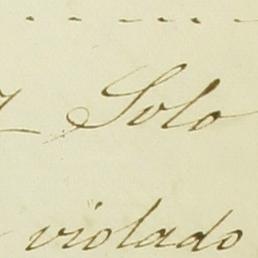 Solo
violado